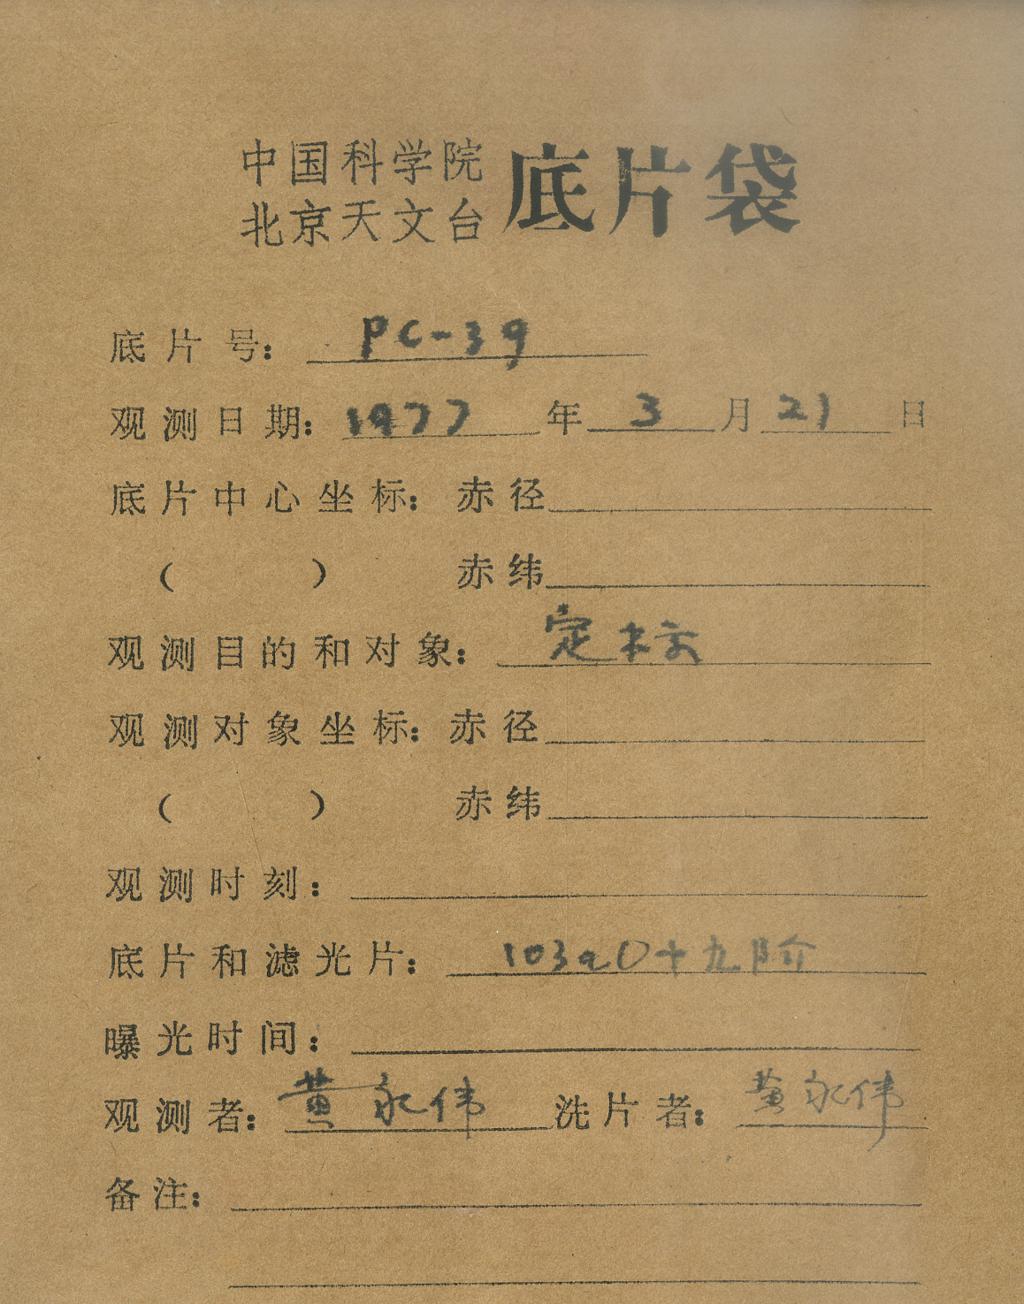 中国科学院
北京天文台
底片袋
底片号: PC-39
观测日期: 1977 年 3 月 21 日
底片中心坐标: 赤径
( ) 赤纬
观测目的和对象: 定标
观测对象坐标: 赤径
( ) 赤纬
观测时刻:
底片和滤光片: 103aO十九阶
曝光时间:
观测者: 黄永伟 洗片者: 黄永伟
备注: